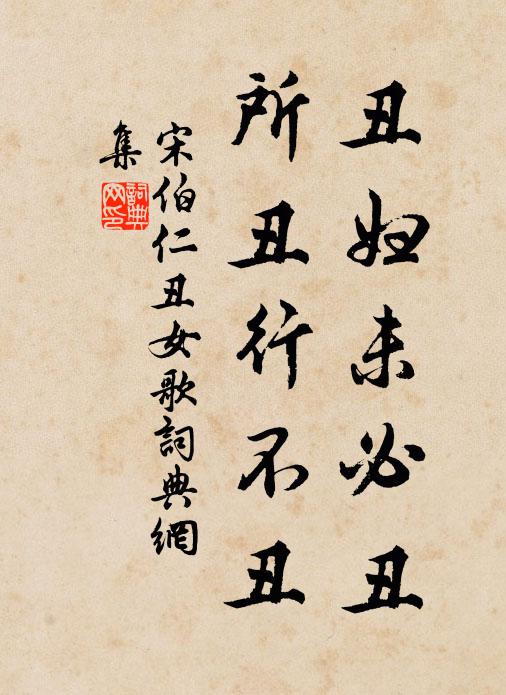 丑妇未必丑
所丑行不丑
宋伯仁丑女歌詞典網
集
詞典网印